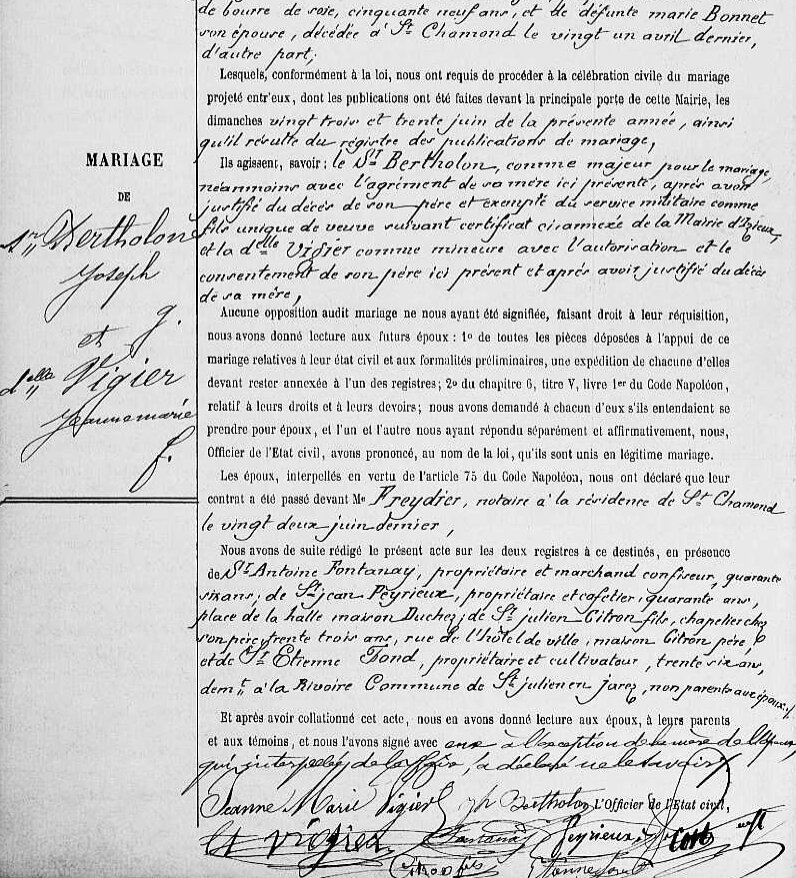 de bourre de soie, cinquante neuf ans, et de défunte marie Bonnet
son épouse, décédée à St Chamond le vingt un avril dernier,
d'autre part;
Lesquels, conformément à la loi, nous ont requis de procéder à la célébration civile du mariage
projeté entr'eux, dont les publications ont été faites devant la principale porte de cette Mairie, les
dimanches vingt trois et trente juin de la présente année, ainsi
qu'il résulte du régistre des publications de mariage,
Ils agissent, savoir: le Sr Bertholon, comme majeur pour le mariage,
néanmoins avec l'agrément de sa mère ici présente, après avoir
justifié du décès de son père et exempté du service militaire comme
fils unique de veuve suivant certificat ci annexé de la Mairie d'Izieux,
et la delle Vigier comme mineure avec l'autorisation et le
consentement de son père ici présent et après avoir justifié du décès
de sa mère,
MARIAGE
DE
Sr Bertholon
Joseph
g.
et
delle Vigier
Jeanne marie
f.
Aucune opposition audit mariage ne nous ayant été signifiée, faisant droit à leur réquisition,
nous avons donné lecture aux futurs époux : 1o de toutes les pièces déposées à l'appui de ce
mariage relatives à leur état civil et aux formalités préliminaires, une expédition de chacune d'elles
devant rester annexée à l'un des registres; 2o du chapitre 6, titre V, livre 1er du Code Napoléon,
relatif à leurs droits et à leurs devoirs; nous avons demandé à chacun d'eux s'ils entendaient se
prendre pour époux, et l'un et l'autre nous ayant répondu séparément et affirmativement, nous,
Officier de l'Etat civil, avons prononcé, au nom de la loi, qu'ils sont unis en légitime mariage.
Les époux, interpellés en vertu de l'article 75 du Code Napoléon, nous ont déclaré que leur
contrat a été passé devant Me Freydier, notaire à la résidence de St Chamond
le vingt deux juin dernier,
Nous avons de suite rédigé le présent acte sur les deux registres à ce destinés, en présence
de Sr Antoine Fontanay, propriétaire et marchand confiseur, quarante
six ans; de Sr jean Peyrieux, propriétaire et cafetier, quarante ans,
place de la halle maison Duchez; de Sr julien Citron fils, chapelier chez
son père, trente trois ans, rue de l'hôtel de ville, maison Citron père,
et de Sr Etienne Fond, propriétaire et cultivateur, trente six ans,
demt à la Rivoire Commune de St julien en jarez, non parents aux époux.
Et après avoir collationné cet acte, nous en avons donné lecture aux époux, à leurs parents
et aux témoins, et nous l'avons signé avec eux à l'exception de la mère de l'époux,
qui, interpelée de le faire, a déclaré ne le savoir
Jeanne Marie Vigier jh Bertholon L'Officier de l'Etat civil,
Vigier Fontanay Peyrieux
Citron fils Etienne Fond